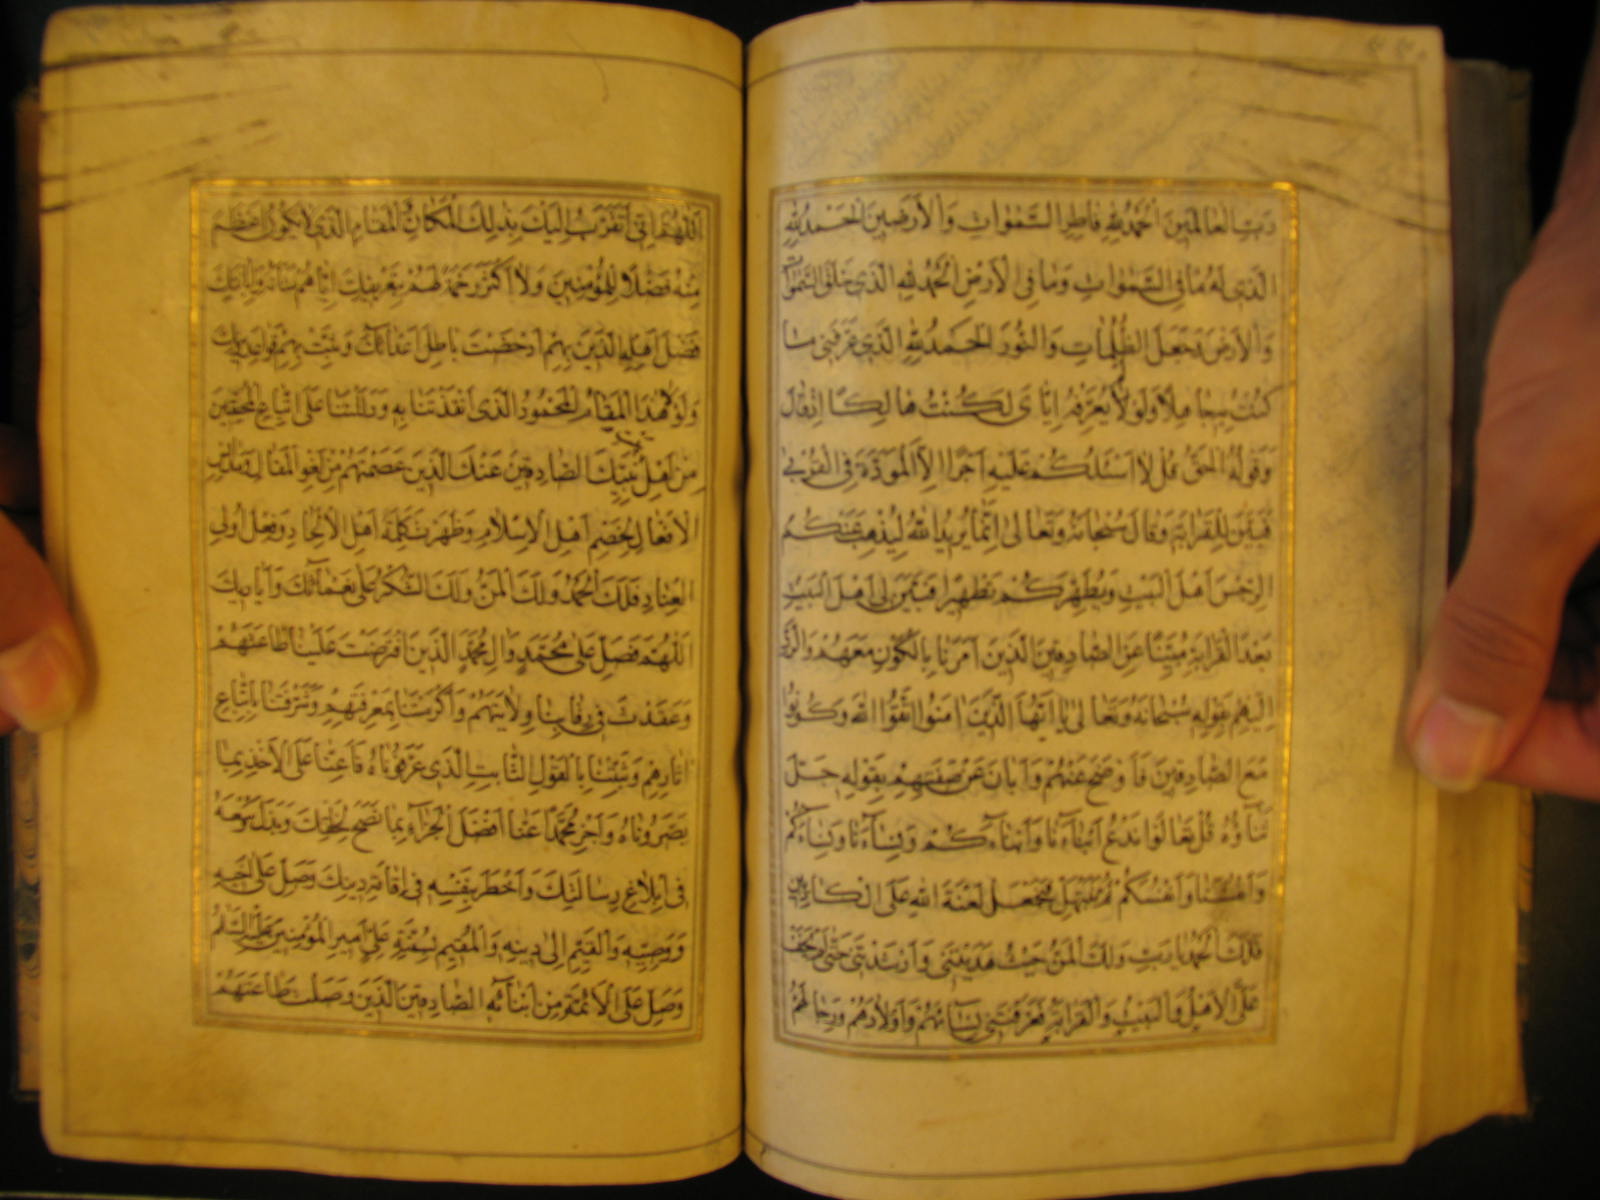 رَبِّ الْعالَمينَ اَلْحَمْدُ لِلّهِ فاطِرِ السَّمٰواتِ وَالْاَرَضينَ اَلْحَمْدُ لِلّهِ
الَّذى لَهُ ما فِى السَّمٰواتِ وَما فِى الْاَرْضِ اَلْحَمْدُ لِلّهِ الَّذى خَلَقَ السَّمٰواتِ
وَالْاَرْضَ وَجَعَلَ الظُّلُماتِ وَالنُّورَ اَلْحَمْدُ لِلّهِ الَّذى عَرَّفَنى ما
كُنْتُ بِهِ جاهِلاً وَلَوْلا تَعْريفُهُ اِيّاىَ لَكُنْتُ هالِكًا اِذْ قالَ
وَقَوْلُهُ الْحَقُّ قُلْ لا اَسْئَلُكُمْ عَلَيْهِ اَجْرًا اِلاَّ الْمَوَدَّةَ فِى الْقُرْبى
فَبَيَّنَ لِىَ الْقَرابَةَ وَقالَ سُبْحانَهُ وَتَعالى اِنَّما يُريدُ اللّهُ لِيُذْهِبَ عَنْكُمُ
الرِّجْسَ اَهْلَ الْبَيْتِ وَيُطَهِّرَكُمْ تَطْهيرًا فَبَيَّنَ لى اَهْلَ الْبَيْتِ
بَعْدَ الْقَرابَةِ مُبَيِّنًا عَنِ الصّادِقينَ الَّذينَ اَمَرَنا بِالْكَوْنِ مَعَهُمْ وَالرَّدِّ
اِلَيْهِمْ بِقَوْلِهِ سُبْحانَهُ وَتَعالى يا اَيُّهَا الَّذينَ امَنُوا اتَّقُوا اللّهَ وَكُونُوا
مَعَ الصّادِقينَ فَاَوْضَحَ عَنْهُمْ وَاَبانَ عَنْ صِفَتِهِمْ بِقَوْلِهِ جَلَّ
ثَناؤُهُ قُلْ تَعالَوْا نَدْعُ اَبْناءَنا وَاَبْناءَكُمْ وَنِساءَنا وَنِساءَكُمْ
وَاَنْفُسَنا وَاَنْفُسَكُمْ ثُمَّ نَبْتَهِلْ فَنَجْعَلْ لَعْنَةَ اللّهِ عَلَى الْكاذِبينَ
فَلَكَ الْحَمْدُ يا رَبِّ وَلَكَ الْمَنُّ حَيْثُ هَدَيْتَنى وَاَرْشَدْتَنى حَتّى لَمْ يَخْفَ
عَلَىَّ الْاَهْلُ وَالْبَيْتُ وَالْقَرابَةُ فَعَرَّفْتَنى نِساءَهُمْ وَاَوْلادَهُمْ وَرِجالَهُمْ
اَللّهُمَّ اِنّى اَتَقَرَّبُ اِلَيْكَ بِذلِكَ الْمَكانِ الْمَقامِ الَّذى لا يَكُونُ اَعْظَمُ
مِنْهُ فَضْلاً لِلْمُؤْمِنينَ وَلا اَكْثَرُ رَحْمَةً لَهُمْ بِتَعْريفِكَ اِيّاهُمْ شَاْنَهُ وَاِبانَتِكَ
فَضْلَ اَهْلِهِ الَّذينَ بِهِمْ اَدْحَضْتَ باطِلَ اَعْدائِكَ وَثَبَّتَّ بِهِمْ قَواعِدَ دينِكَ
وَلَوْلا هذَا الْمَقامُ الْمَحْمُودُ الَّذى اَنْقَذْتَنا بِهِ وَدَلَلْتَنا عَلَى اتِّباعِ الْمُحِقّينَ
مِنْ اَهْلِ بَيْتِ نَبِيِّكَ الصّادِقينَ عَنْكَ الَّذينَ عَصَمْتَهُمْ مِنْ لَغْوِ الْمَقالِ وَمَدانِسِ
الْاَفْعالِ لَخُصِمَ اَهْلُ الْاِسْلامِ وَظَهَرَتْ كَلِمَةُ اَهْلِ الْاِلْحادِ وَفِعْلُ اُولِى
الْعِنادِ فَلَكَ الْحَمْدُ وَلَكَ الْمَنُّ وَلَكَ الشُّكْرُ عَلى نَعْمائِكَ وَاَياديكَ
اَللّهُمَّ فَصَلِّ عَلى مُحَمَّدٍ وَالِ مُحَمَّدٍ الَّذينَ افْتَرَضْتَ عَلَيْنا طاعَتَهُمْ
وَعَقَدْتَ فى رِقابِنا وِلايَتَهُمْ وَاَكْرَمْتَنا بِمَعْرِفَتِهِمْ وَشَرَّفْتَنا بِاتِّباعِ
اثارِهِمْ وَثَبَّتْنا بِالْقَوْلِ الثّابِتِ الَّذى عَرَّفُوناهُ فَاَعِنّا عَلَى الْاَخْذِ بِما
بَصَّرُوناهُ وَاَجْزِ مُحَمَّدًا عَنّا اَفْضَلَ الْجَزاءِ بِما نَصَحَ لِخَلْقِكَ وَبَذَلَ وُسْعَهُ
فى اِبْلاغِ رِسالَتِكَ وَاَخْطَرَ بِنَفْسِهِ فى اِقامَةِ دينِكَ وَصَلِّ عَلى اَخيهِ
وَوَصِيِّهِ وَالْقَيِّمِ اِلى دينِهِ وَالْمُقيمِ لِسُنَّتِهِ عَلِىٍّ اَميرِ الْمُؤْمِنينَ عَلَيْهِ السَّلامُ
وَصَلِّ عَلَى الْاَئِمَّةِ مِنْ اَبْنائِهِ الصّادِقينَ الَّذينَ وَصَلْتَ طاعَتَهُمْ